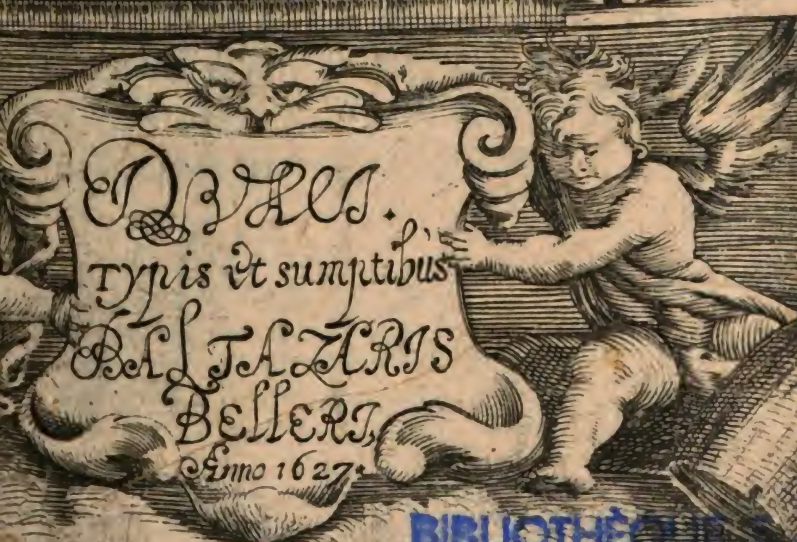 DVACI.
Typis et sumptibus
BALTAZARIS
BELLERI,
Anno 1627.
BIBLIOTHÈQUE S